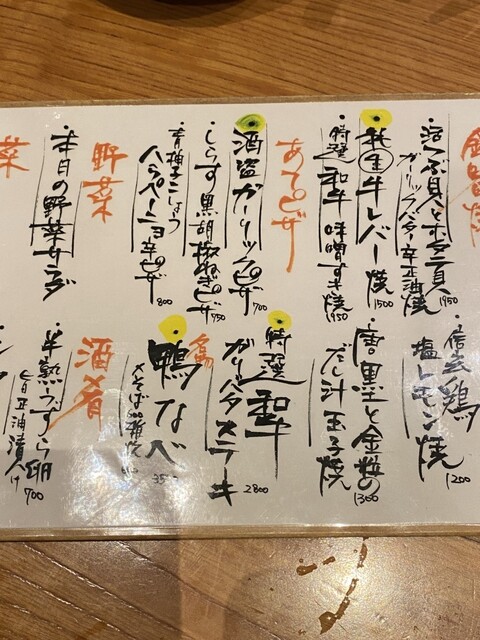 活つぶ貝とホタテ貝
ガーリックバター辛正油焼
1950
・純生牛レバー焼
1500
・特選和牛味噌すき焼
1950
あてピザ
酒盗ガーリックピザ
700
・しらす黒胡椒ねぎピザ
950
・青柚子こしょう
ハラペーニョ辛ピザ
800
野菜
・本日の野菜サラダ
菜
・信玄鶏
塩レモン焼
1200
・唐墨と金糀の
だし汁玉子焼
1300
・特選和牛
ガリバタステーキ
2800
鴨なべ
酒肴
・半熟うずら卵
旨正油漬け
700